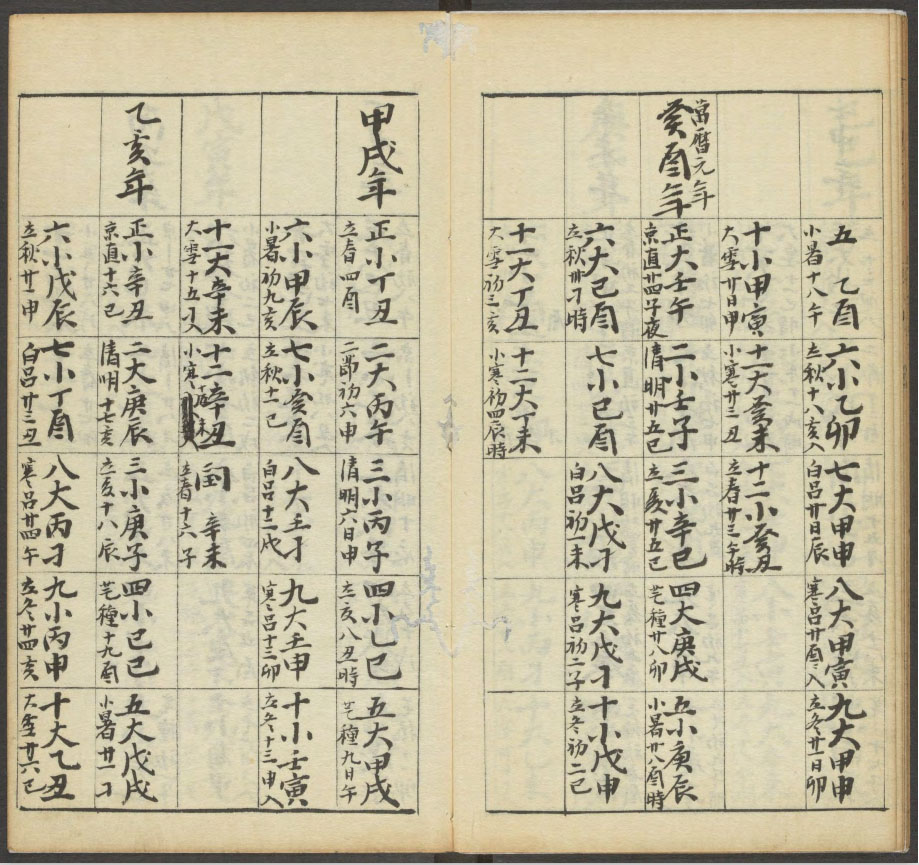 五 乙酉
小暑十八午
六小乙卯
立秋十八亥入
七大甲申
白呂廿日辰
八大甲寅
寒呂廿酉入
九大甲申
立冬廿一日卯
十小甲寅
大雪廿日申
十一大癸未
小寒廿三丑
十二小癸丑
立春廿三午時
萬暦元年
癸酉年
正大壬午
京直廿四子夜
二小壬子
清明廿五巳
三小辛巳
立夏廿五巳
四大庚戌
芒種廿八卯
五小庚辰
小暑廿八酉時
六大己酉
立秋卅刁時
七小己酉
八大戊刁
白呂初一未
九大戊刁
寒呂初二子
十小戊申
立冬初二巳
十一大丁丑
大雪初三亥
十二大丁未
小寒初四辰時
甲戌年
正小丁丑
立春四酉
二大丙午
二節初六申
三小丙子
清明六日申
四小乙巳
立夏八丑時
五大甲戌
芒種九日午
六小甲辰
小暑初九亥
七小癸酉
立秋十一巳
八大壬刁
白呂十二戌
九大壬申
寒呂十三卯
十小壬寅
立冬十三申入
十一大辛未
大雪十五刁入
十二辛丑
小寒
閏 辛未
立春十六子
乙亥年
正小辛丑
京直十六巳
二大庚辰
清明十七亥
三小庚子
立夏十八辰
四小己巳
芒種十九酉
五大戊戌
小暑廿一刁
六小戊辰
立秋廿一申
七小丁酉
白呂廿三丑
八大丙刁
寒呂廿四午
九小丙申
立冬廿四亥
十大乙丑
大雪廿六巳